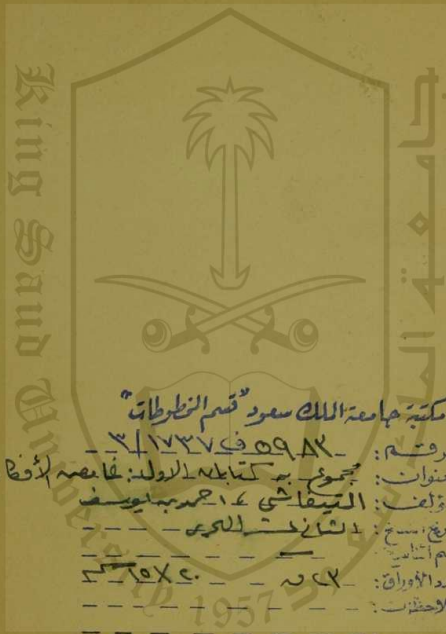 King Saud University
جامعة الملك سعود
1957
مكتبة جامعة الملك سعود "قسم المخطوطات"
الرقم: ٥٩٨٣ ف ١٧٣٧/٣
العنوان: مجموع به كتابان الاول: غامص الأفكا
المؤلف: التيفاشي ، احمد بن يوسف
تاريخ النسخ: الثاني عشر الهجري
اسم الناسخ:
عدد الأوراق: ٢٣ ق ٢٠×١٥ سم
ملاحظات: